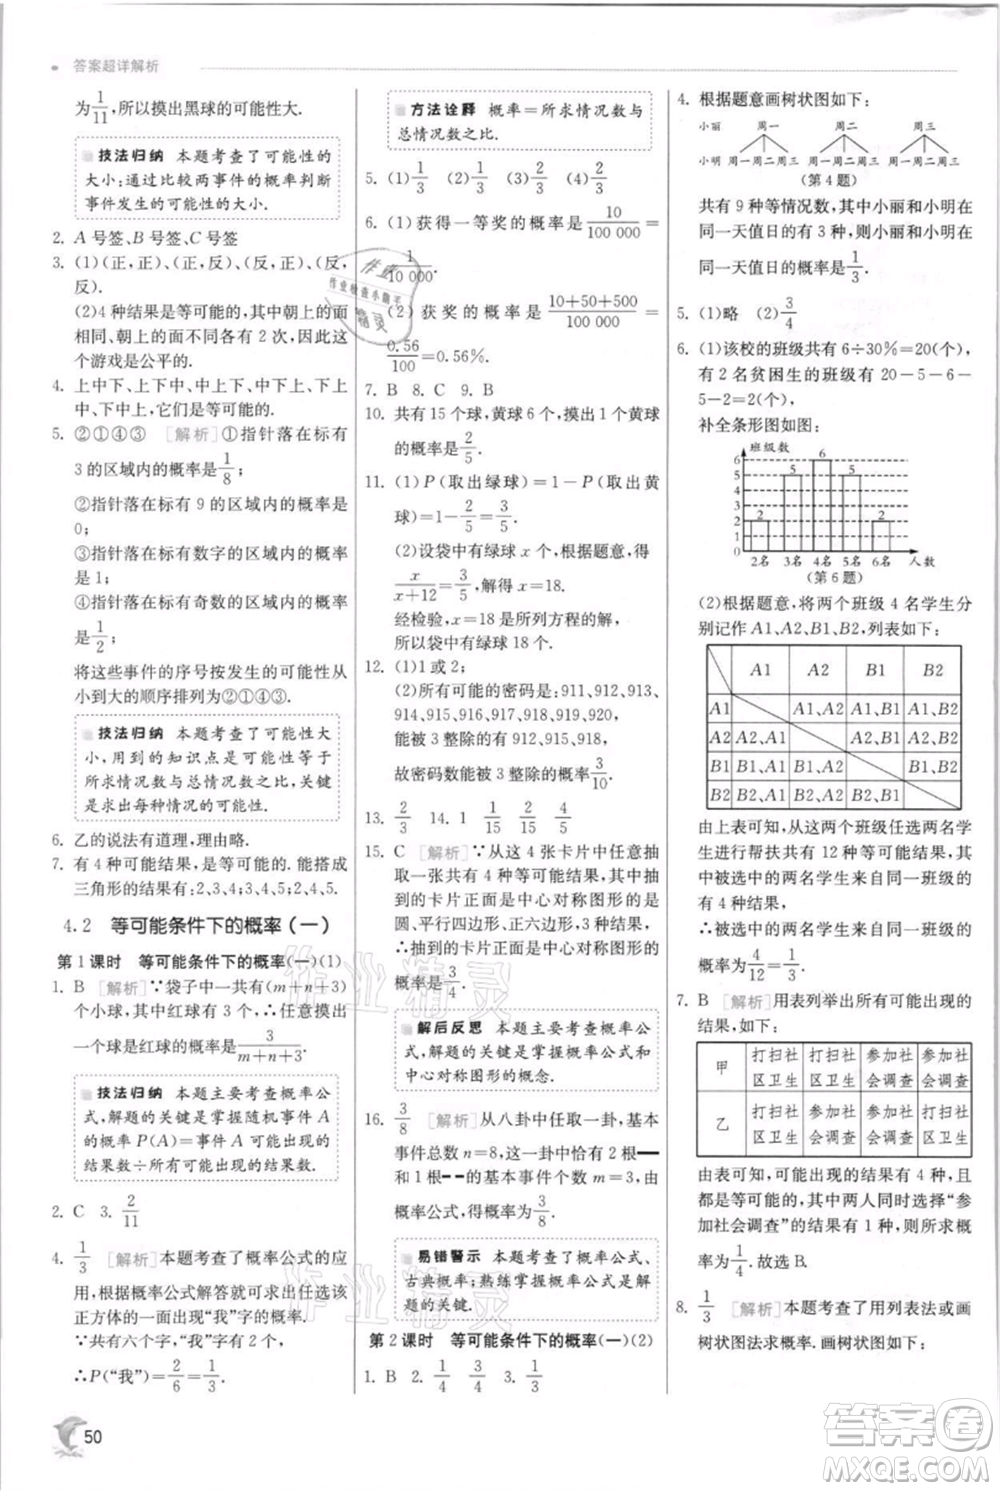 答案超详解析
为1/11,所以摸出黑球的可能性大.
技法归纳 本题考查了可能性的
大小:通过比较两事件的概率判断
事件发生的可能性的大小.
2. A号签、B号签、C号签
3. (1)(正,正),(正,反),(反,正),(反,
反).
(2)4种结果中,朝上的面相同有2
种、朝上的面不同各有2次,因此这
个游戏是公平的.
4. 上中下、上下中、中上下、中下上、下
上中、下中上,它们是等可能的.
5. ②①④③ [解析]①指针落在标有
3的区域内的概率是1/8;
②指针落在标有9的区域内的概率是
0;
③指针落在标有数字的区域内的概率
是1;
④指针落在标有奇数的区域内的概率
是1/2;
将这些事件的序号按发生的可能性从
小到大的顺序排列为②①④③.
技法归纳 本题考查了可能性大
小,用到的知识点是可能性等于
所求情况数与总情况数之比,关键
是求出每种情况的可能性.
6. 乙的说法有道理,理由略.
7. 有4种可能结果,是等可能的.能搭成
三角形的结果有:2、3、4,2、4、5,3、4、5.
4.2 等可能条件下的概率(一)
第1课时 等可能条件下的概率(一)(1)
1. B [解析]∵袋子中一共有(m+n+3)
个小球,其中红球有3个,∴任意摸出
一个球是红球的概率是3/(m+n+3).
技法归纳 本题主要考查概率公
式,解题的关键是掌握随机事件A
的概率P(A)=事件A可能出现的
结果数÷所有可能出现的结果数.
2. C 3. 2/11
4. 1/3 [解析]本题考查了概率公式的应
用,依据概率公式解答就可以求出任意该
正方体的一面出现“我”字的概率.
∵共有六个字,“我”字有2个,
∴P(“我”)=2/6=1/3.
50
方法诠释 概率=所求情况数与
总情况数之比.
5. (1)1/3 (2)1/3 (3)1/3 (4)1/3
6. (1)获得一等奖的概率是10/100 000=
1/10 000.
(2)获奖的概率是(10+50+500)/100 000=
0.56/100=0.56%.
7. B 8. C 9. B
10. 共有15个球,黄球6个,摸出1个黄球
的概率是2/5.
11. (1)P(取出绿球)=1-P(取出黄
球)=1-2/5=3/5.
(2)设袋中有绿球x个,根据题意,得
x/(x+12)=3/5,解得x=18.
经检验,x=18是所列方程的解.
所以袋中有绿球18个.
12. (1)1或2;
(2)所有可能的密码是:911,912,913,
914,915,916,917,918,919,920,
能被3整除的有912,915,918.
故密码数能被3整除的概率3/10.
13. 2/3 14. 1 1/15 2/15 4/5
15. C [解析]∵从这4张卡片中任意抽
取一张,卡片正面是中心对称图形的是
圆、平行四边形、正六边形,3种结果,
∴抽到的卡片正面是中心对称图形的
概率是3/4.
解后反思 本题主要考查概率公
式,解题的关键是掌握概率公式和
中心对称图形的概念.
16. 3/8 [解析]从八卦中任取一卦,基本
事件总数n=8,这一卦中恰有2根—
和1根--的基本事件个数m=3,
∴这一卦中恰有2根—和1根--的
概率为3/8.
易错警示 本题考查概率公式、
古典概率;熟练掌握概率公式是解
题的关键.
第2课时 等可能条件下的概率(一)(2)
1. B 2. 1/4 3/4 3. 1/4
4. 根据题意画树状图如下:
小丽 周一 周二 周三
小明 周一周二周三 周一周二周三 周一周二周三
(第4题)
共有9种等情况数,其中小丽和小明在
同一天值日的有3种,则小丽和小明在
同一天值日的概率是1/3.
5. (1)略 (2)3/4
6. (1)该校的班级共有6÷30%=20(个),
有2名贫困生的班级有20-5-6-
5-2=2(个),
补全条形图如图:
班级数
6
5
4
3
2
1
0
2 5 6 5 2
2名 3名 4名 5名 6名 人数
(第6题)
(2)根据题意,将两个班级4名学生分
别记作A1、A2、B1、B2,列表如下:
A1 A2 B1 B2
A1 A1、A2 A1、B1 A1、B2
A2 A1、A2 A2、B1 A2、B2
B1 B1、A1 B1、A2 B1、B2
B2 B2、A1 B2、A2 B2、B1
由上表可知,从这两个班级任选两名学
生进行帮扶共有12种等可能结果,其中
被选中的两名学生来自同一班级的有4
种结果,
∴被选中的两名学生来自同一班级的概率为
4/12=1/3.
7. B [解析]用表列举出所有可能出现的
结果,如下:
甲 打扫社区卫生 打扫社区卫生 参加社会调查 参加社会调查
乙 打扫社区卫生 参加社会调查 打扫社区卫生 参加社会调查
由表可知,可能出现的结果有4种,且
都是等可能的,其中两人同时选择“参
加社会调查”的只有1种,所以所求概
率为1/4.故选B.
8. 1/3 [解析]本题考查了用列表法或画
树状图法求概率.画树状图如下:
答案圈
MXQE.COM